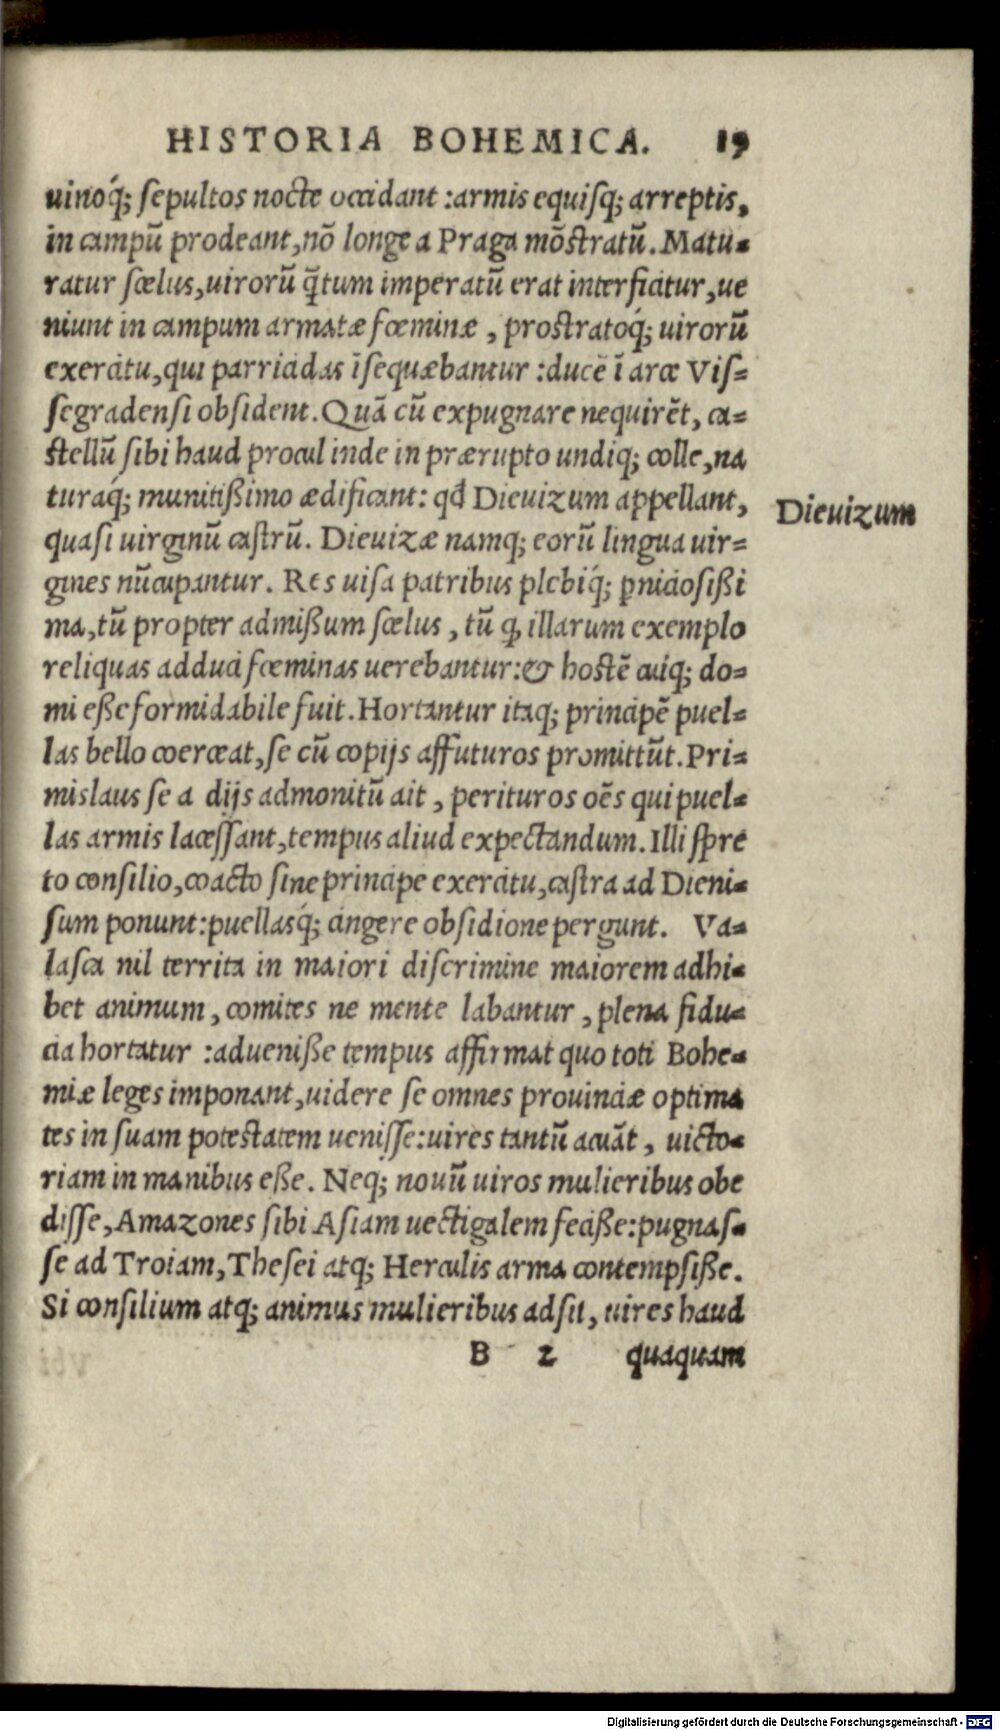 HISTORIA BOHEMICA. 19
uinoq́; sepultos nocte occidant :armis equisq; arreptis,
in campū prodeant,nō longe a Praga mōstratū. Matu-
ratur scelus,uirorū q̄tum imperatū erat interficitur,ue
niunt in campum armatæ fœminæ , prostratoq́; uirorū
exercitu,qui parricidas īsequæbantur :ducē ī arce Vis-
segradensi obsident. Quā cū expugnare nequirēt, ca-
stellū sibi haud procul inde in prærupto undiq; colle,na
turaq́; munitißimo ædificant: qđ Dieuizum appellant,
quasi uirginū castrū. Dieuizæ namq; eorū lingua uir-
gines nūcupantur. Res uisa patribus plebiq́; ꝑniciosißi
ma,tū propter admißum scelus , tū ꝙ illarum exemplo
reliquas adduci fœminas uerebantur:& hostē cuiq; do-
mi eße formidabile fuit. Hortantur itaq; principē puel-
las bello coerceat,se cū copijs affuturos promittūt. Pri-
mislaus se a dijs admonitū ait , perituros oēs qui puel-
las armis lacessant,tempus aliud expectandum. Illi spre
to consilio,coacto sine principe exercitu,castra ad Dieni-
sum ponunt:puellasq́; cingere obsidione pergunt. Va-
lasca nil territa in maiori discrimine maiorem adhi-
bet animum , comites ne mente labantur , plena fidu-
cia hortatur :adueniße tempus affirmat quo toti Bohe-
miæ leges imponant,uidere se omnes prouinciæ optima
tes in suam potestatem uenisse:uires tantū acuāt , uicto-
riam in manibus eße. Neq; nouū uiros mulieribus obe
disse,Amazones sibi Asiam uectigalem feciße:pugnas-
se ad Troiam,Thesei atq; Herculis arma contempsiße.
Si consilium atq; animus mulieribus adsit, uires haud
B 2 quaquam
Dieuizum
Digitalisierung gefördert durch die Deutsche Forschungsgemeinschaft - DFG